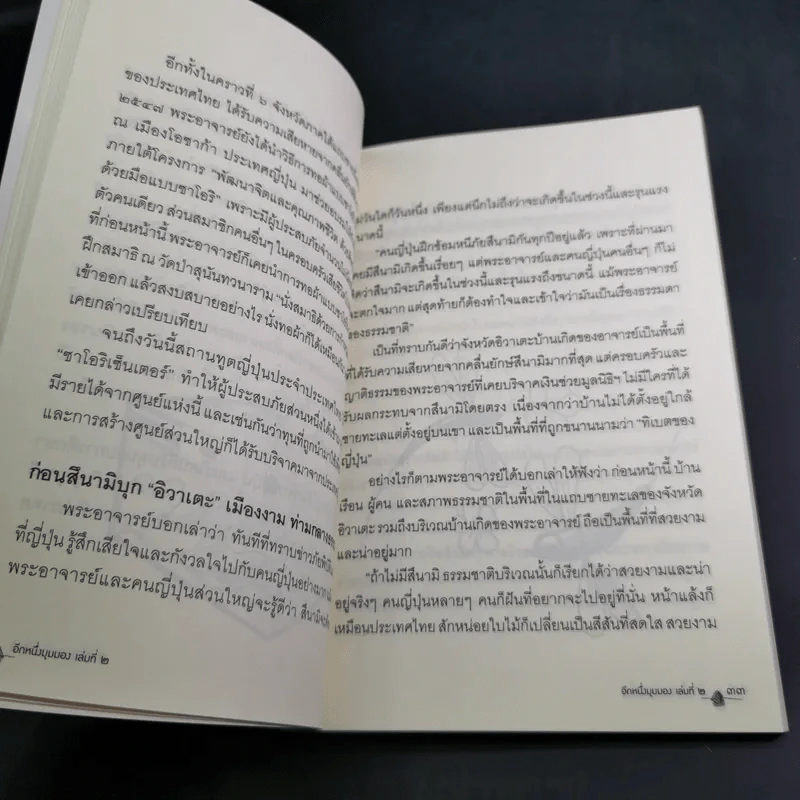 อีกทั้งในคราวที่ ๖ จังหวัดภาคใต้
ของประเทศไทย ได้รับความเสียหายจาก
๒๕๔๗ พระอาจารย์ยังได้นำวิธีการทอผ้าแบบ
ณ เมืองโอซาก้า ประเทศญี่ปุ่น มาช่วย
ภายใต้โครงการ “พัฒนาจิตและคุณภาพชีวิต
ด้วยมือแบบซาโอริ” เพราะมีผู้ประสบภัยจำนวน
ตัวคนเดียว ส่วนสมาชิกคนอื่นๆ ในครอบครัวเสียชีวิต
ที่ก่อนหน้านี้ พระอาจารย์ก็เคยนำการทอผ้าแบบ
ฝึกสมาธิ ณ วัดป่าสุนันทวนาราม “นั่งสมาธิด้วยการ
เข้าออก แล้วสงบสบายอย่างไร นั่งทอผ้าก็ได้เหมือน
เคยกล่าวเปรียบเทียบ
จนถึงวันนี้สถานทูตญี่ปุ่นประจำประเทศ
“ซาโอริเซ็นเตอร์” ทำให้ผู้ประสบภัยส่วนหนึ่งได้
มีรายได้จากศูนย์แห่งนี้ และเช่นกันว่าทุนที่ถูกนำมาใช้
และการสร้างศูนย์ส่วนใหญ่ก็ได้รับบริจาคมาจาก
ก่อนสึนามิบุก “อิวาเตะ” เมืองงาม ท่ามกลาง
พระอาจารย์บอกเล่าว่า ทันทีที่ทราบข่าวภัย
ที่ญี่ปุ่น รู้สึกเสียใจและกังวลใจไปกับคนญี่ปุ่นอย่างมาก
พระอาจารย์และคนญี่ปุ่นส่วนใหญ่จะรู้ดีว่า สึนามิ
อีกหนึ่งมุมมอง เล่มที่ ๒
วันใดก็วันหนึ่ง เพียงแต่นึกไม่ถึงว่าจะเกิดขึ้นในช่วงนี้และรุนแรง
ขนาดนี้
“คนญี่ปุ่นฝึกซ้อมหนีภัยสึนามิกันทุกปีอยู่แล้ว เพราะที่ผ่านมา
เคยมีสึนามิเกิดขึ้นเรื่อยๆ แต่พระอาจารย์และคนญี่ปุ่นคนอื่นๆ ก็ไม่
คิดว่าสึนามิจะเกิดขึ้นในช่วงนี้และรุนแรงถึงขนาดนี้ แม้พระอาจารย์
จะตกใจมาก แต่สุดท้ายก็ต้องทำใจและเข้าใจว่ามันเป็นเรื่องธรรมดา
ของธรรมชาติ”
เป็นที่ทราบกันดีว่าจังหวัดอิวาเตะบ้านเกิดของอาจารย์เป็นพื้นที่
ที่ได้รับความเสียหายจากคลื่นยักษ์สึนามิมากที่สุด แต่ครอบครัวและ
ญาติธรรมของพระอาจารย์ที่เคยบริจาคเงินช่วยมูลนิธิฯ ไม่มีใครที่ได้
รับผลกระทบจากสึนามิโดยตรง เนื่องจากว่าบ้านไม่ได้ตั้งอยู่ใกล้
ชายทะเลแต่ตั้งอยู่บนเขา และเป็นพื้นที่ที่ถูกขนานนามว่า “ทิเบตของ
ญี่ปุ่น”
อย่างไรก็ตามพระอาจารย์ได้บอกเล่าให้ฟังว่า ก่อนหน้านี้ บ้าน
เรือน ผู้คน และสภาพธรรมชาติในพื้นที่ในแถบชายทะเลของจังหวัด
อิวาเตะ รวมถึงบริเวณบ้านเกิดของพระอาจารย์ ถือเป็นพื้นที่ที่สวยงาม
และน่าอยู่มาก
“ถ้าไม่มีสึนามิ ธรรมชาติบริเวณนั้นก็เรียกได้ว่าสวยงามและน่า
อยู่จริงๆ คนญี่ปุ่นหลายๆ คนก็ฝันที่อยากจะไปอยู่ที่นั่น หน้าแล้งก็
เหมือนประเทศไทย สักหน่อยใบไม้ก็เปลี่ยนเป็นสีสันที่สดใส สวยงาม
อีกหนึ่งมุมมอง เล่มที่ ๒ ๓๓